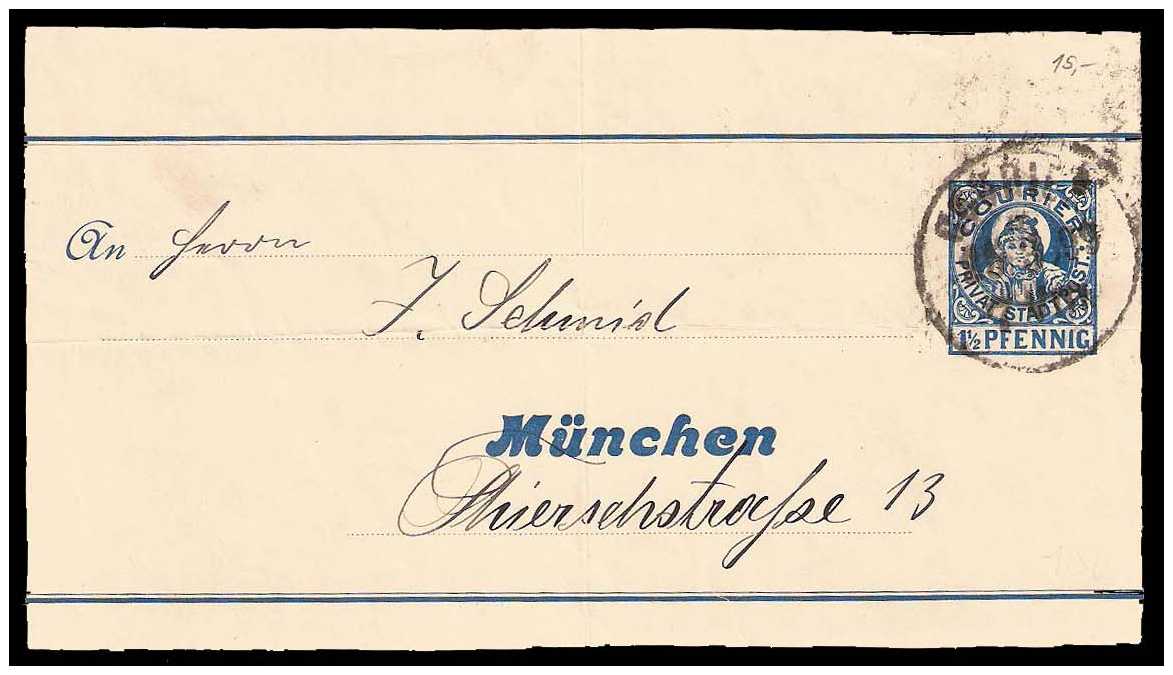 15,-
COURIER
PRIVAT STADTPOST
1½ PFENNIG
An Herrn
J. Schmid
München
Thierschstraße 13